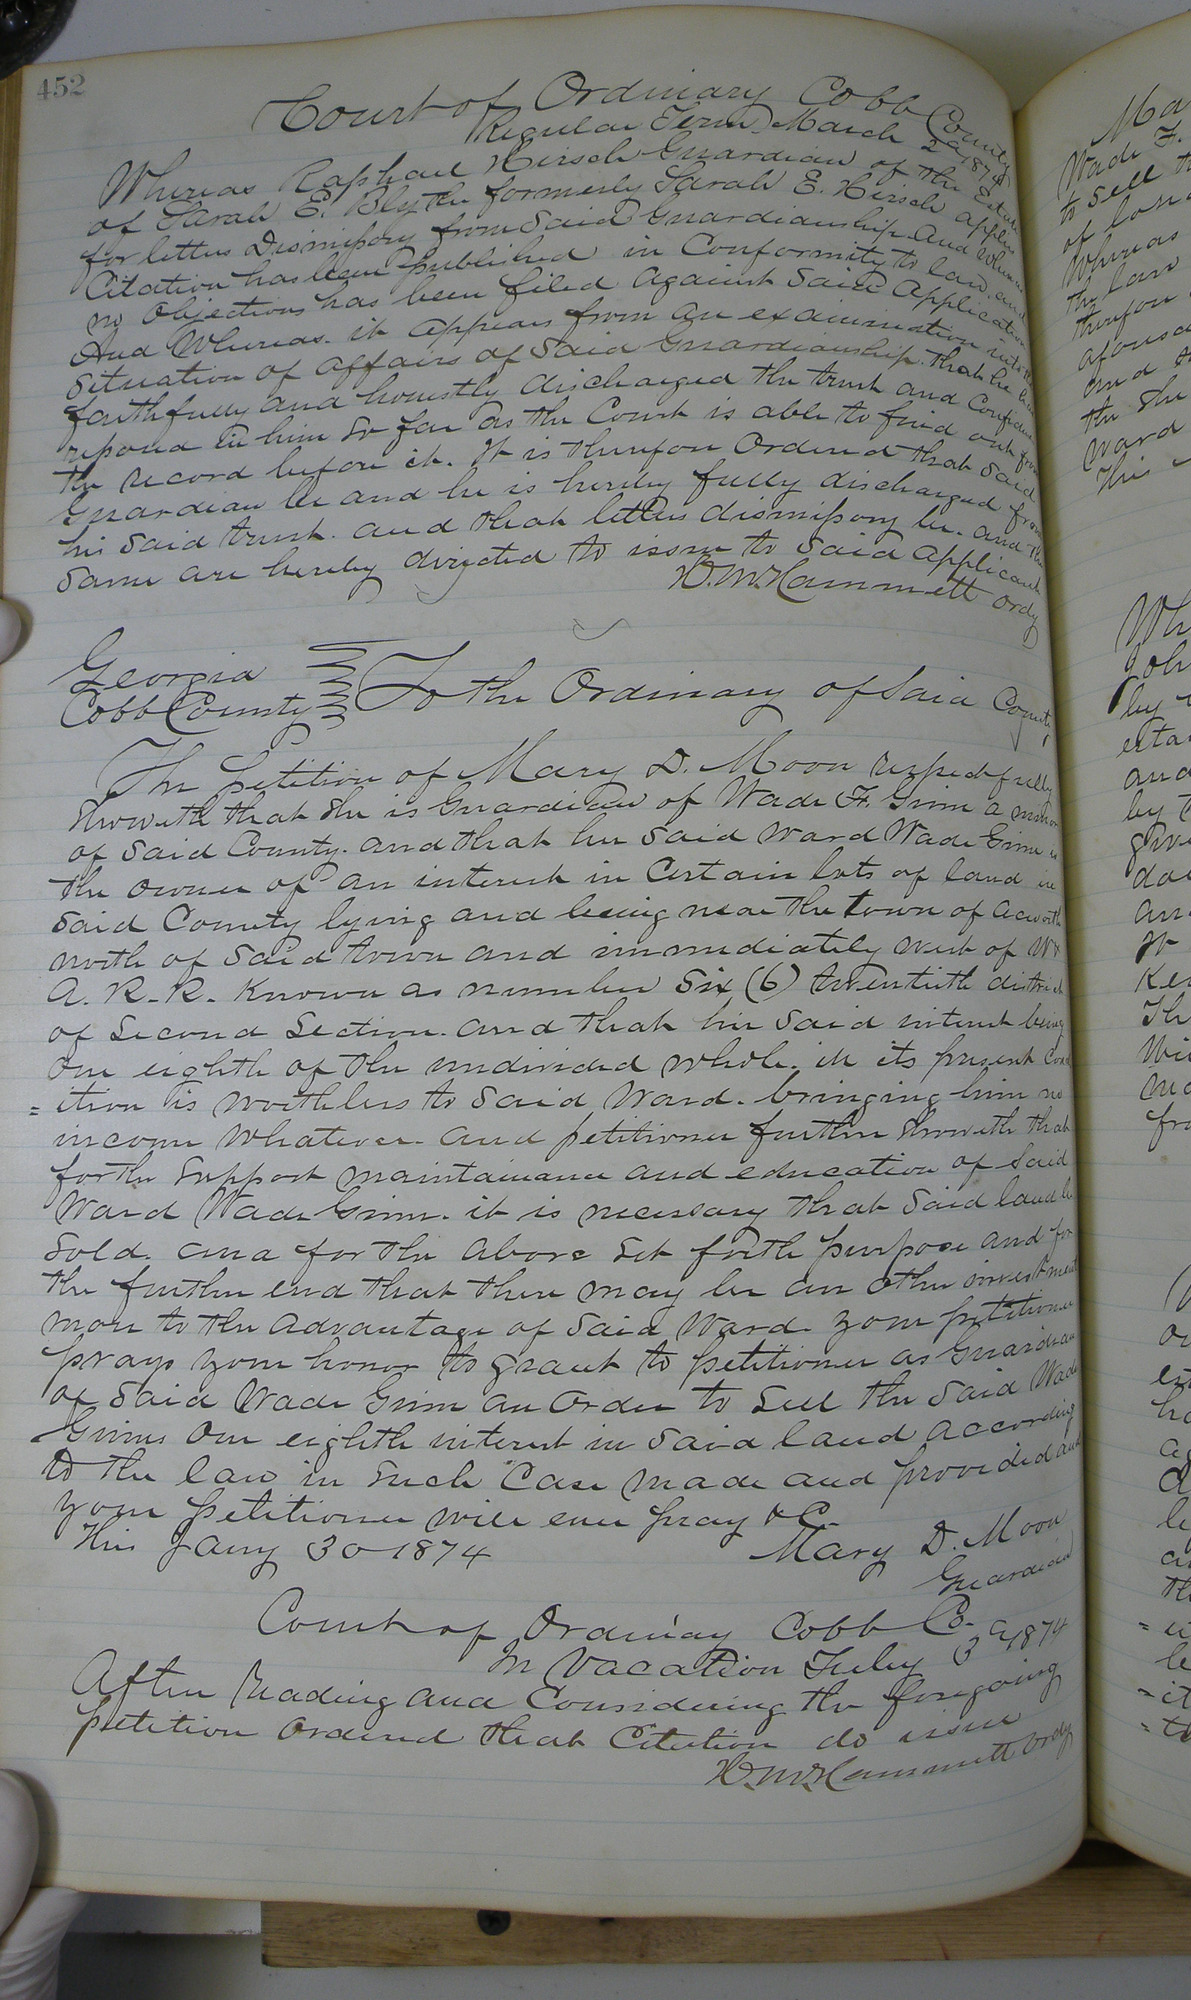 452
Court of Ordinary Cobb County
Regular Term March 2d 1874
Whereas Raphael Hirsch Guardian of the Estate
of Sarah E. Blythe formerly Sarah E. Hirsch applies
for letters Dismissory from said Guardianship. And Whereas
Citation has been published in Conformity to law. and
no Objections has been filed against said Application
And Whereas. it appears from an examination into the
situation of affairs of said Guardianship. that he has
faithfully and honestly discharged the trust and Confidence
reposed in him so far as the Court is able to find out from
the record before it. It is therefore Ordered that said
Guardian be and he is hereby fully discharged from
his said trust. and that letters dismissory be. and the
same are hereby directed to issue to said applicant
H. M. Hammett Ordy
Georgia
Cobb County
To the Ordinary of said County
The Petition of Mary D. Moon respectfully
showeth that she is Guardian of Wade F. Ginn a minor
of said County. and that her said Ward Wade Ginn is
the owner of an interest in Certain lots of land in
said County lying and being near the town of Acworth
north of said town and immediately west of W &
A. R. R. Known as number Six (6) twentieth district
of Second Section. and that his said interest being
one eighth of the undivided whole. in its present Cond
= ition is worthless to said Ward. bringing him no
income whatever. and petitioner further showeth that
for the support maintainance and education of said
Ward Wade Ginn. it is necessary that said land be
sold. and for the above set forth purpose and for
the further end that there may be an other investment
more to the advantage of said Ward. your petitioner
prays your honor to grant to petitioner as Guardian
of said Wade Ginn an Order to sell the said Wade
Ginns One eighth interest in said land according
to the law in such Case made and provided and
your petitioner will ever pray &C.
This Jany 30 1874
Mary D. Moon
Guardian
Court of Ordinary Cobb Co.
In Vacation Feby 3d 1874
After Reading and Considering the foregoing
petition Ordered that Citation do issue
H. M. Hammett Ordy